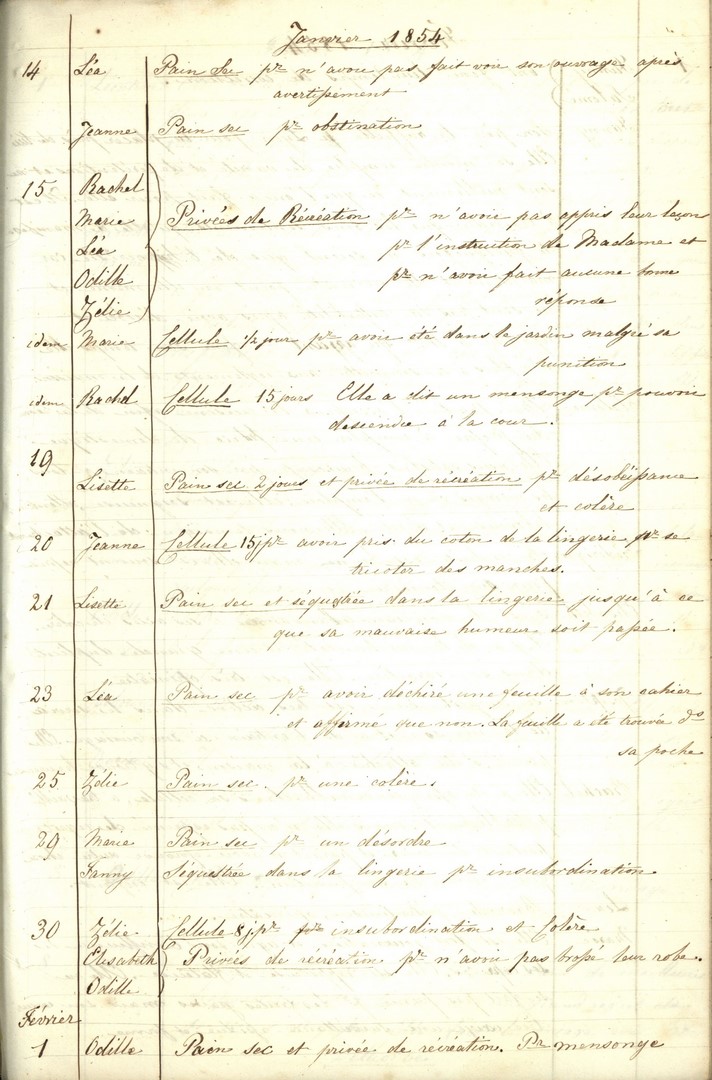 Janvier 1854
14 Léa Pain Sec pr n'avoir pas fait voir son ouvrage après
avertissement
Jeanne Pain sec pr obstination
15 Rachel
Marie Privées de Récréation pr n'avoir pas appris leur leçon
Léa pr l'instruction de Madame et
Odille pr n'avoir fait aucune bonne
Zélie réponse
idem Marie Cellule 1/2 jour pr avoir été dans le jardin malgré sa
punition
idem Rachel Cellule 15 jours Elle a dit un mensonge pr pouvoir
descendre à la cour.
19
Lisette Pain sec 2 jours et privée de récréation pr désobéissance
et colère
20 Jeanne Cellule 15j pr avoir pris du coton de la lingerie pr se
tricoter des manches.
21 Lisette Pain sec et séquestrée dans la lingerie jusqu'à ce
que sa mauvaise humeur soit passée.
23 Léa Pain sec pr avoir déchiré une feuille à son cahier
et affirmé que non. La feuille a été trouvée ds
sa poche
25 Zélie Pain sec. pr une colère.
29 Marie Pain sec pr un désordre
Fanny Séquestrée dans la lingerie pr insubordination
30 Zélie Cellule 8 j. pr insubordination et Colère
Elisabeth Privées de récréation pr n'avoir pas brossé leur robe.
Odille
Février
1 Odille Pain sec et privée de récréation. Pr mensonge